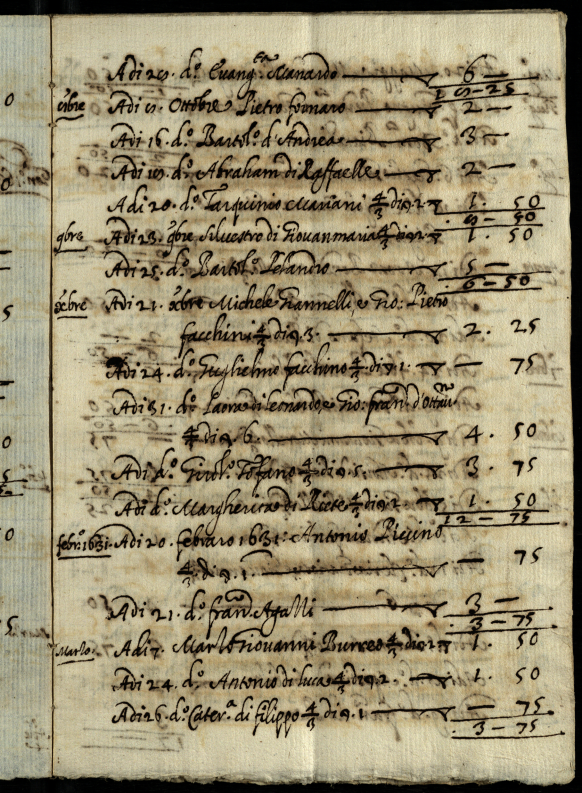 Adi 25. d.º Euang.ta Manardo 6 —
15 — 25
8bre Adi 5. Ottobre Pietro fornaro 2 —
Adi 16. d.º Bartol.º d'Andrea 3 —
Adi 19. d.º Abraham di Raffaelle 2 —
Adi 20. d.º Tarquinio Mariani 3/4 di q. 2 1. 50
50
9bre Adi 23. 9bre Siluestro di Giouanmaria 3/4 di q. 2 1. 50
Adi 25. d.º Bartol.º 5 —
6 — 50
Xbre Adi 21. Xbre Michele Giannelli, e Gio: Pietro
facchini 3/4 di q. 3. 2. 25
Adi 24. d.º Guglielmo facchino 3/4 di q. 1. — 75
Adi 31. d.º Laora di Leonardo, e Gio: fran.º d'Ottau.º
3/4 di q. 6. 4. 50
Adi d.º Girol.º Toffano 3/4 di q. 5. 3. 75
Adi d.º Margherita di 3/4 di q. 2 1. 50
12 — 75
febr.º 1631. Adi 20. febraro 1631. Antonio Piccino
3/4 di q. 1. — 75
Adi 21. d.º fran.º Agalli 3 —
3 — 75
Marzo. Adi 7. Marzo Giouanni 3/4 di q. 2 1. 50
Adi 24. d.º Antonio di luca 3/4 di q. 2. 1. 50
Adi 26. d.º Cater.ª di filippo 3/4 di q. 1 — 75
3 — 75